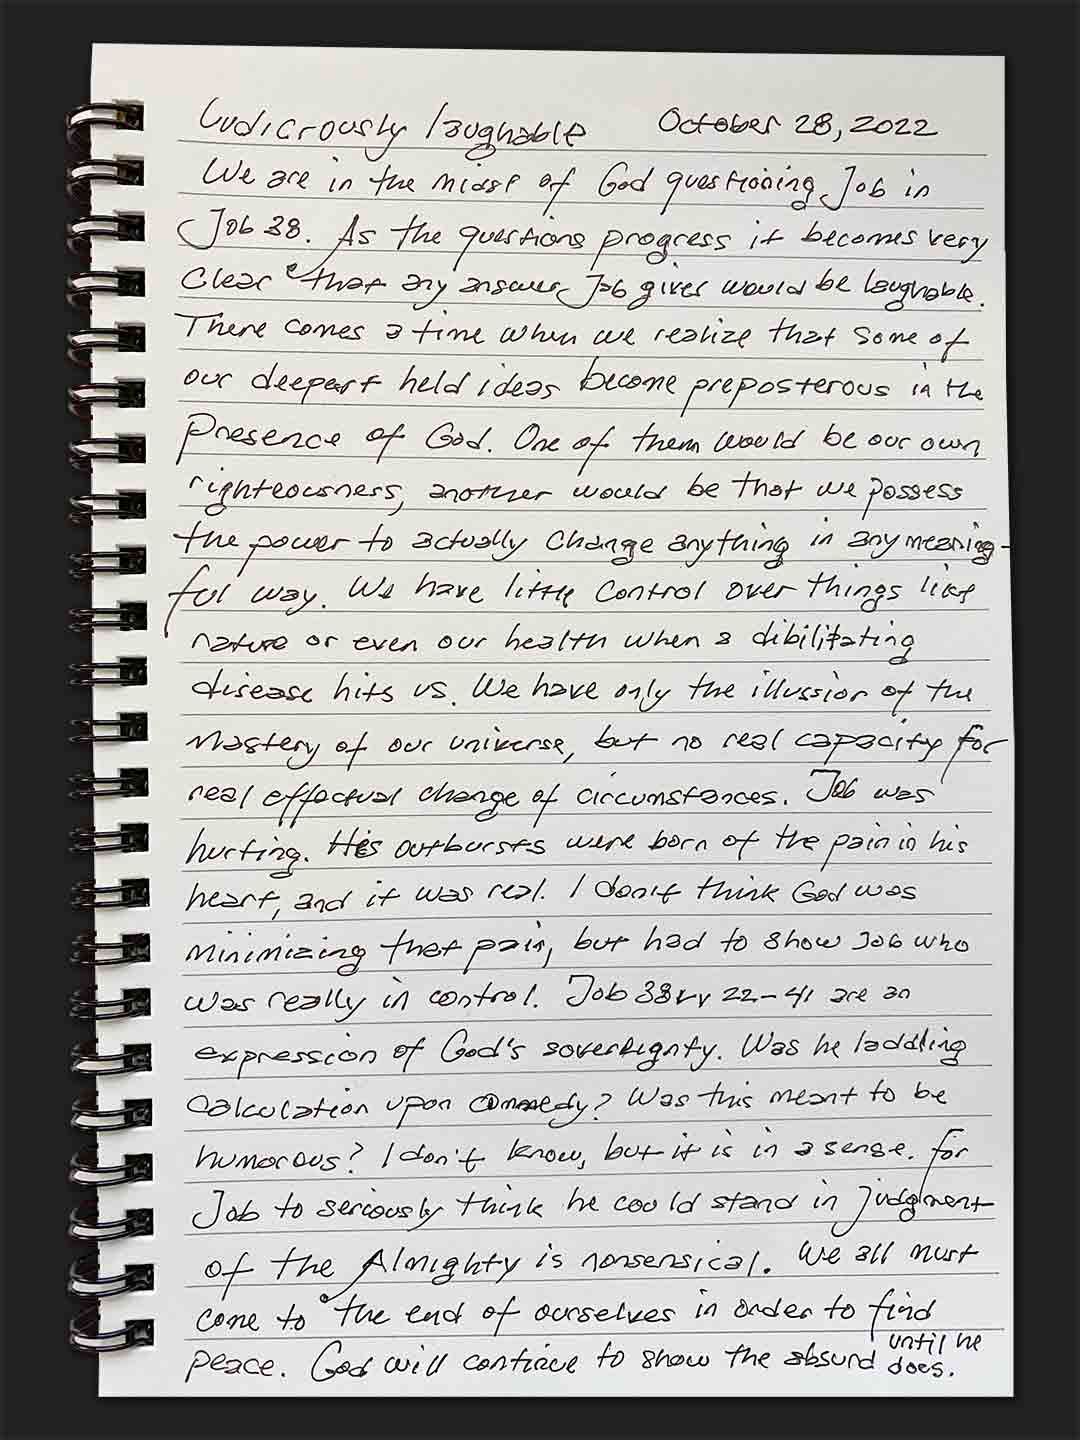 Ludicrously laughable October 28, 2022
We are in the midst of God questioning Job in
Job 38. As the questions progress it becomes very
clear that any answer Job gives would be laughable.
There comes a time when we realize that some of
our deepest held ideas become preposterous in the
presence of God. One of them would be our own
righteousness, another would be that we possess
the power to actually change anything in any meaning-
ful way. We have little control over things like
nature or even our health when a dibilitating
disease hits us. We have only the illussion of the
mastery of our universe, but no real capacity for
real effectual change of circumstances. Job was
hurting. His outbursts were born of the pain in his
heart, and it was real. I don't think God was
minimizing that pain, but had to show Job who
was really in control. Job 38 vv 22-41 are an
expression of God's sovereignty. Was he laddling
calculation upon comedy? Was this meant to be
humorous? I don't know, but it is in a sense. for
Job to seriously think he could stand in judgment
of the Almighty is nonsensical. We all must
come to the end of ourselves in order to find
peace. God will continue to show the absurd until he
does.